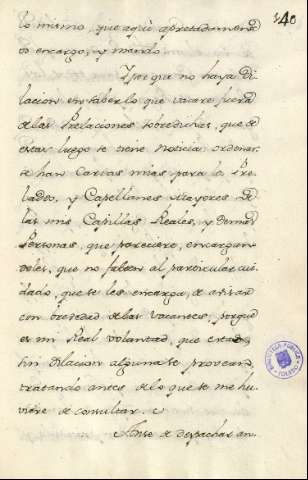 40
lo mismo, que aqui apretadamente
os encargo, y mando.
Y porque no haya di-
lacion en saber lo que vacare fuera
de las Prelaciones sobredichas, que de
estas luego se tiene noticia: ordenar-
se han Cartas mias para los Pre-
lados, y Capellanes Mayores de
las mis Capillas Reales, y demas
Personas, que pareciere, encargan-
doles, que no falten al particular cui-
dado, que se les encarga, de avisar
con brevedad de las vacantes, porque
es mi Real voluntad, que
sin dilacion alguna se provean,
tratando antes de lo que se me hu-
viere de consultar.
de despachar an-
BIBLIOTECA PUBLICA
TOLEDO